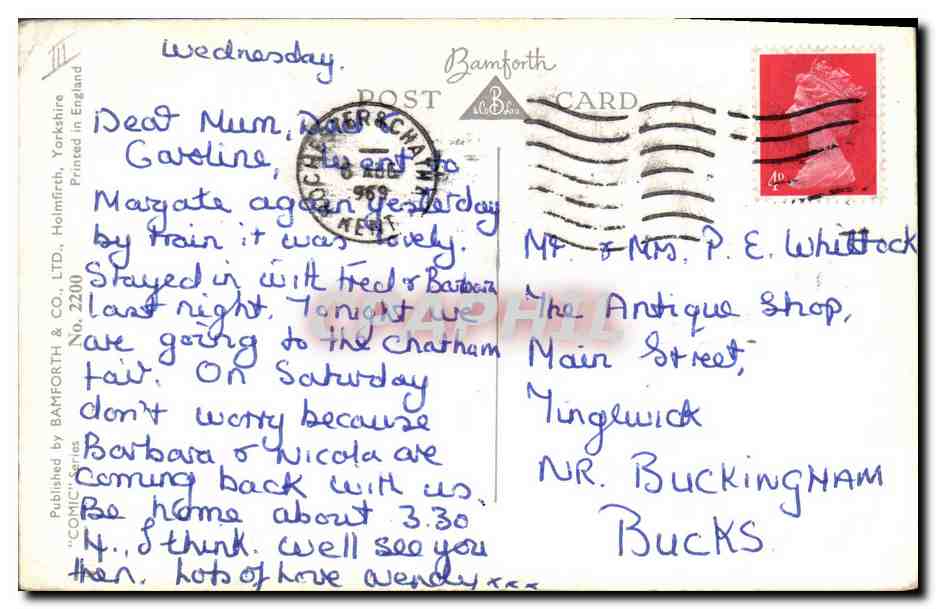 III
Published by BAMFORTH & CO., LTD., Holmfirth, Yorkshire
Printed in England
"COMIC" Series No. 2200
Wednesday.
Dear Mum, Dad &
Caroline, Went to
Margate again yesterday
by train it was lovely.
Stayed in with Fred & Barbara
last night. Tonight we
are going to the Chatham
fair. On Saturday
don't worry because
Barbara & Nicola are
coming back with us.
Be home about 3.30
4., I think. We'll see you
then. Lots of Love Wendy xxx
Bamforth
POST CARD
B
& Co Ld
ROCHESTER & CHATHAM
AUG
1969
KENT
4D
Mr. & Mrs. P. E. Whittock
The Antique Shop,
Main Street,
Tingewick
NR. BUCKINGHAM
BUCKS.
DELCAMPE